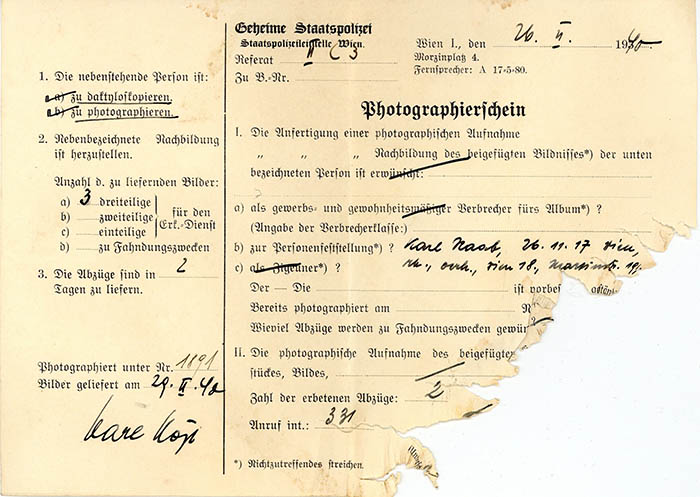 Geheime Staatspolizei
Staatspolizeileitstelle Wien.
Referat II C 3
Zu B.-Nr.
Wien I., den 26. II. 1940.
Morzinplatz 4.
Fernsprecher: A 17-5-80.
1. Die nebenstehende Person ist:
a) zu daktyloskopieren.
b) zu photographieren.
2. Nebenbezeichnete Nachbildung
ist herzustellen.
Anzahl d. zu liefernden Bilder:
a) 3 dreiteilige
b) zweiteilige
c) einteilige
für den
Erk.-Dienst
d) zu Fahndungszwecken
3. Die Abzüge sind in 2
Tagen zu liefern.
Photographiert unter Nr. 1891
Bilder geliefert am 29. II. 40
Photographierschein
I. Die Anfertigung einer photographischen Aufnahme
„ „ „ Nachbildung des beigefügten Bildnisses*) der unten
bezeichneten Person ist erwünscht:
a) als gewerbs- und gewohnheitsmäßiger Verbrecher fürs Album*) ?
(Angabe der Verbrecherklasse:)
b) zur Personenfeststellung*) ? Karl Raab, 26.11.17 Wien,
c) als Zigeuner*) ? rk., verh., Wien 18., 19.
Der — Die ist vorbe
Bereits photographiert am N
Wieviel Abzüge werden zu Fahndungszwecken gewün
II. Die photographische Aufnahme des beigefügten
stückes, Bildes,
Zahl der erbetenen Abzüge: 2
Anruf int.: 331
*) Nichtzutreffendes streichen.